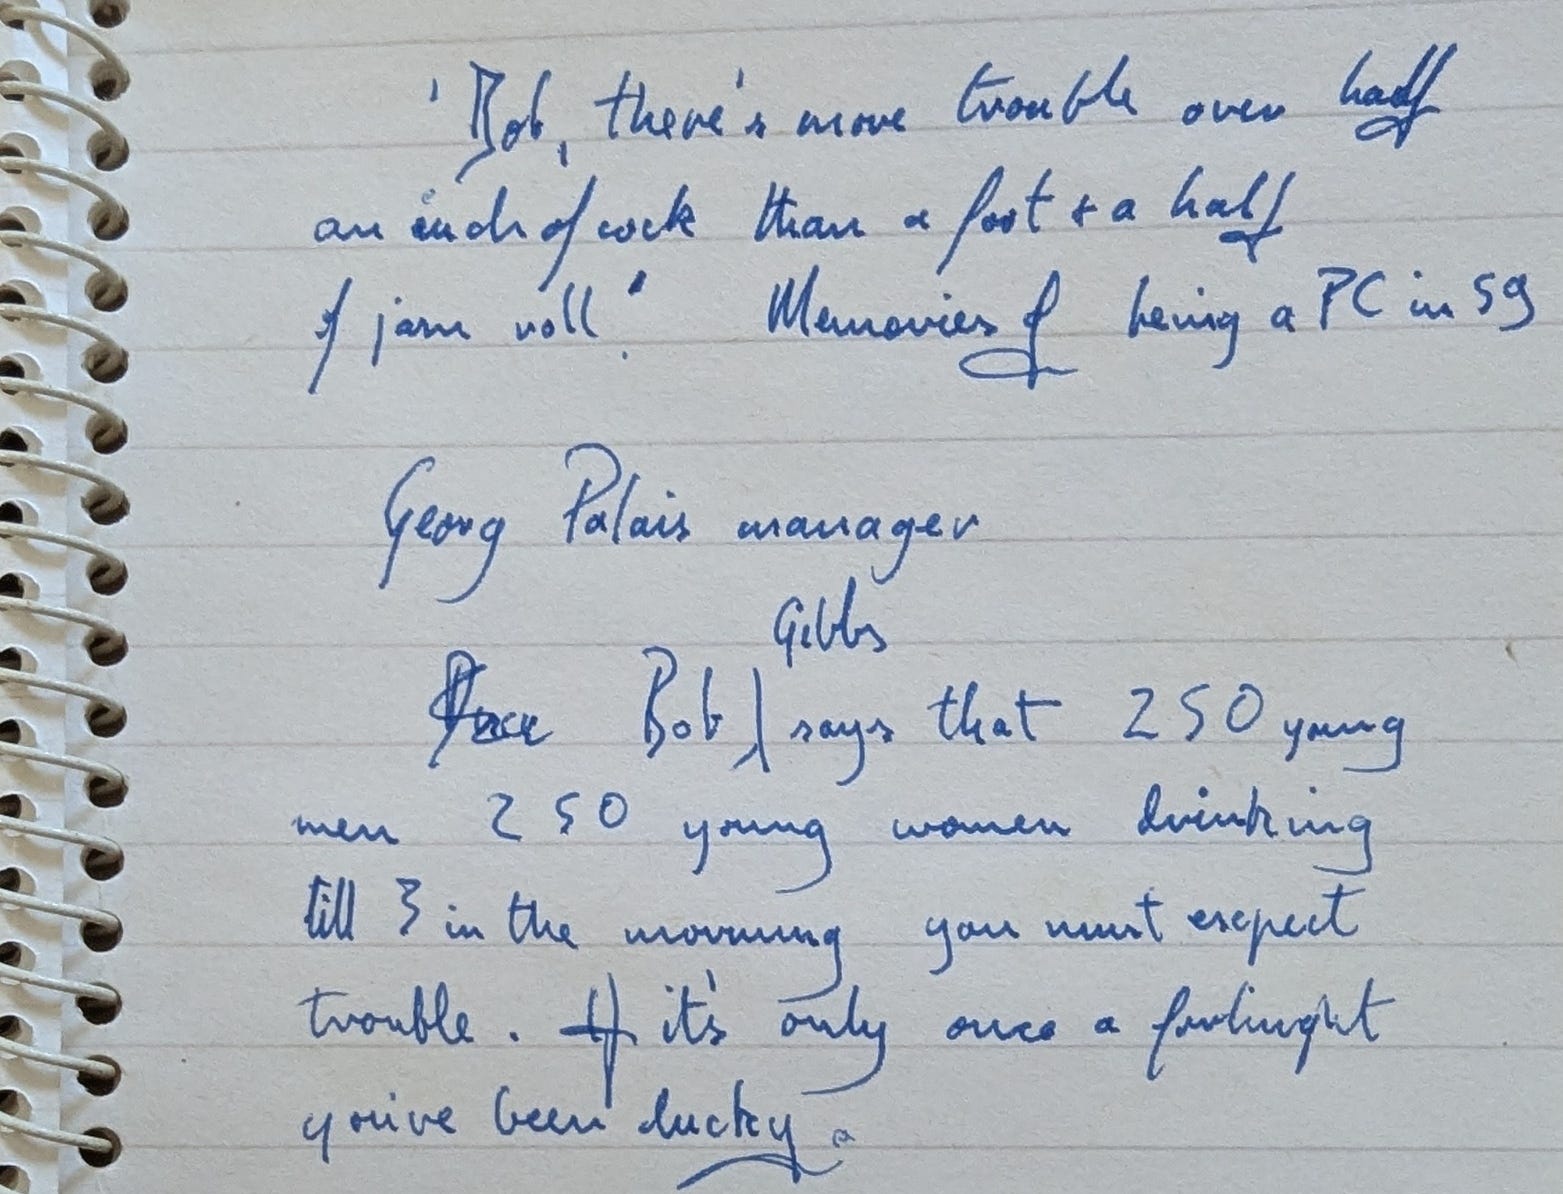 'Bob, there's more trouble over half
an inch of cock than a foot & a half
of jam roll.' Memories of being a PC in 59
Georg Palais manager
Gibbs
Bob says that 250 young
men 250 young women drinking
till 3 in the morning you must expect
trouble. If it's only once a fortnight
you've been lucky.